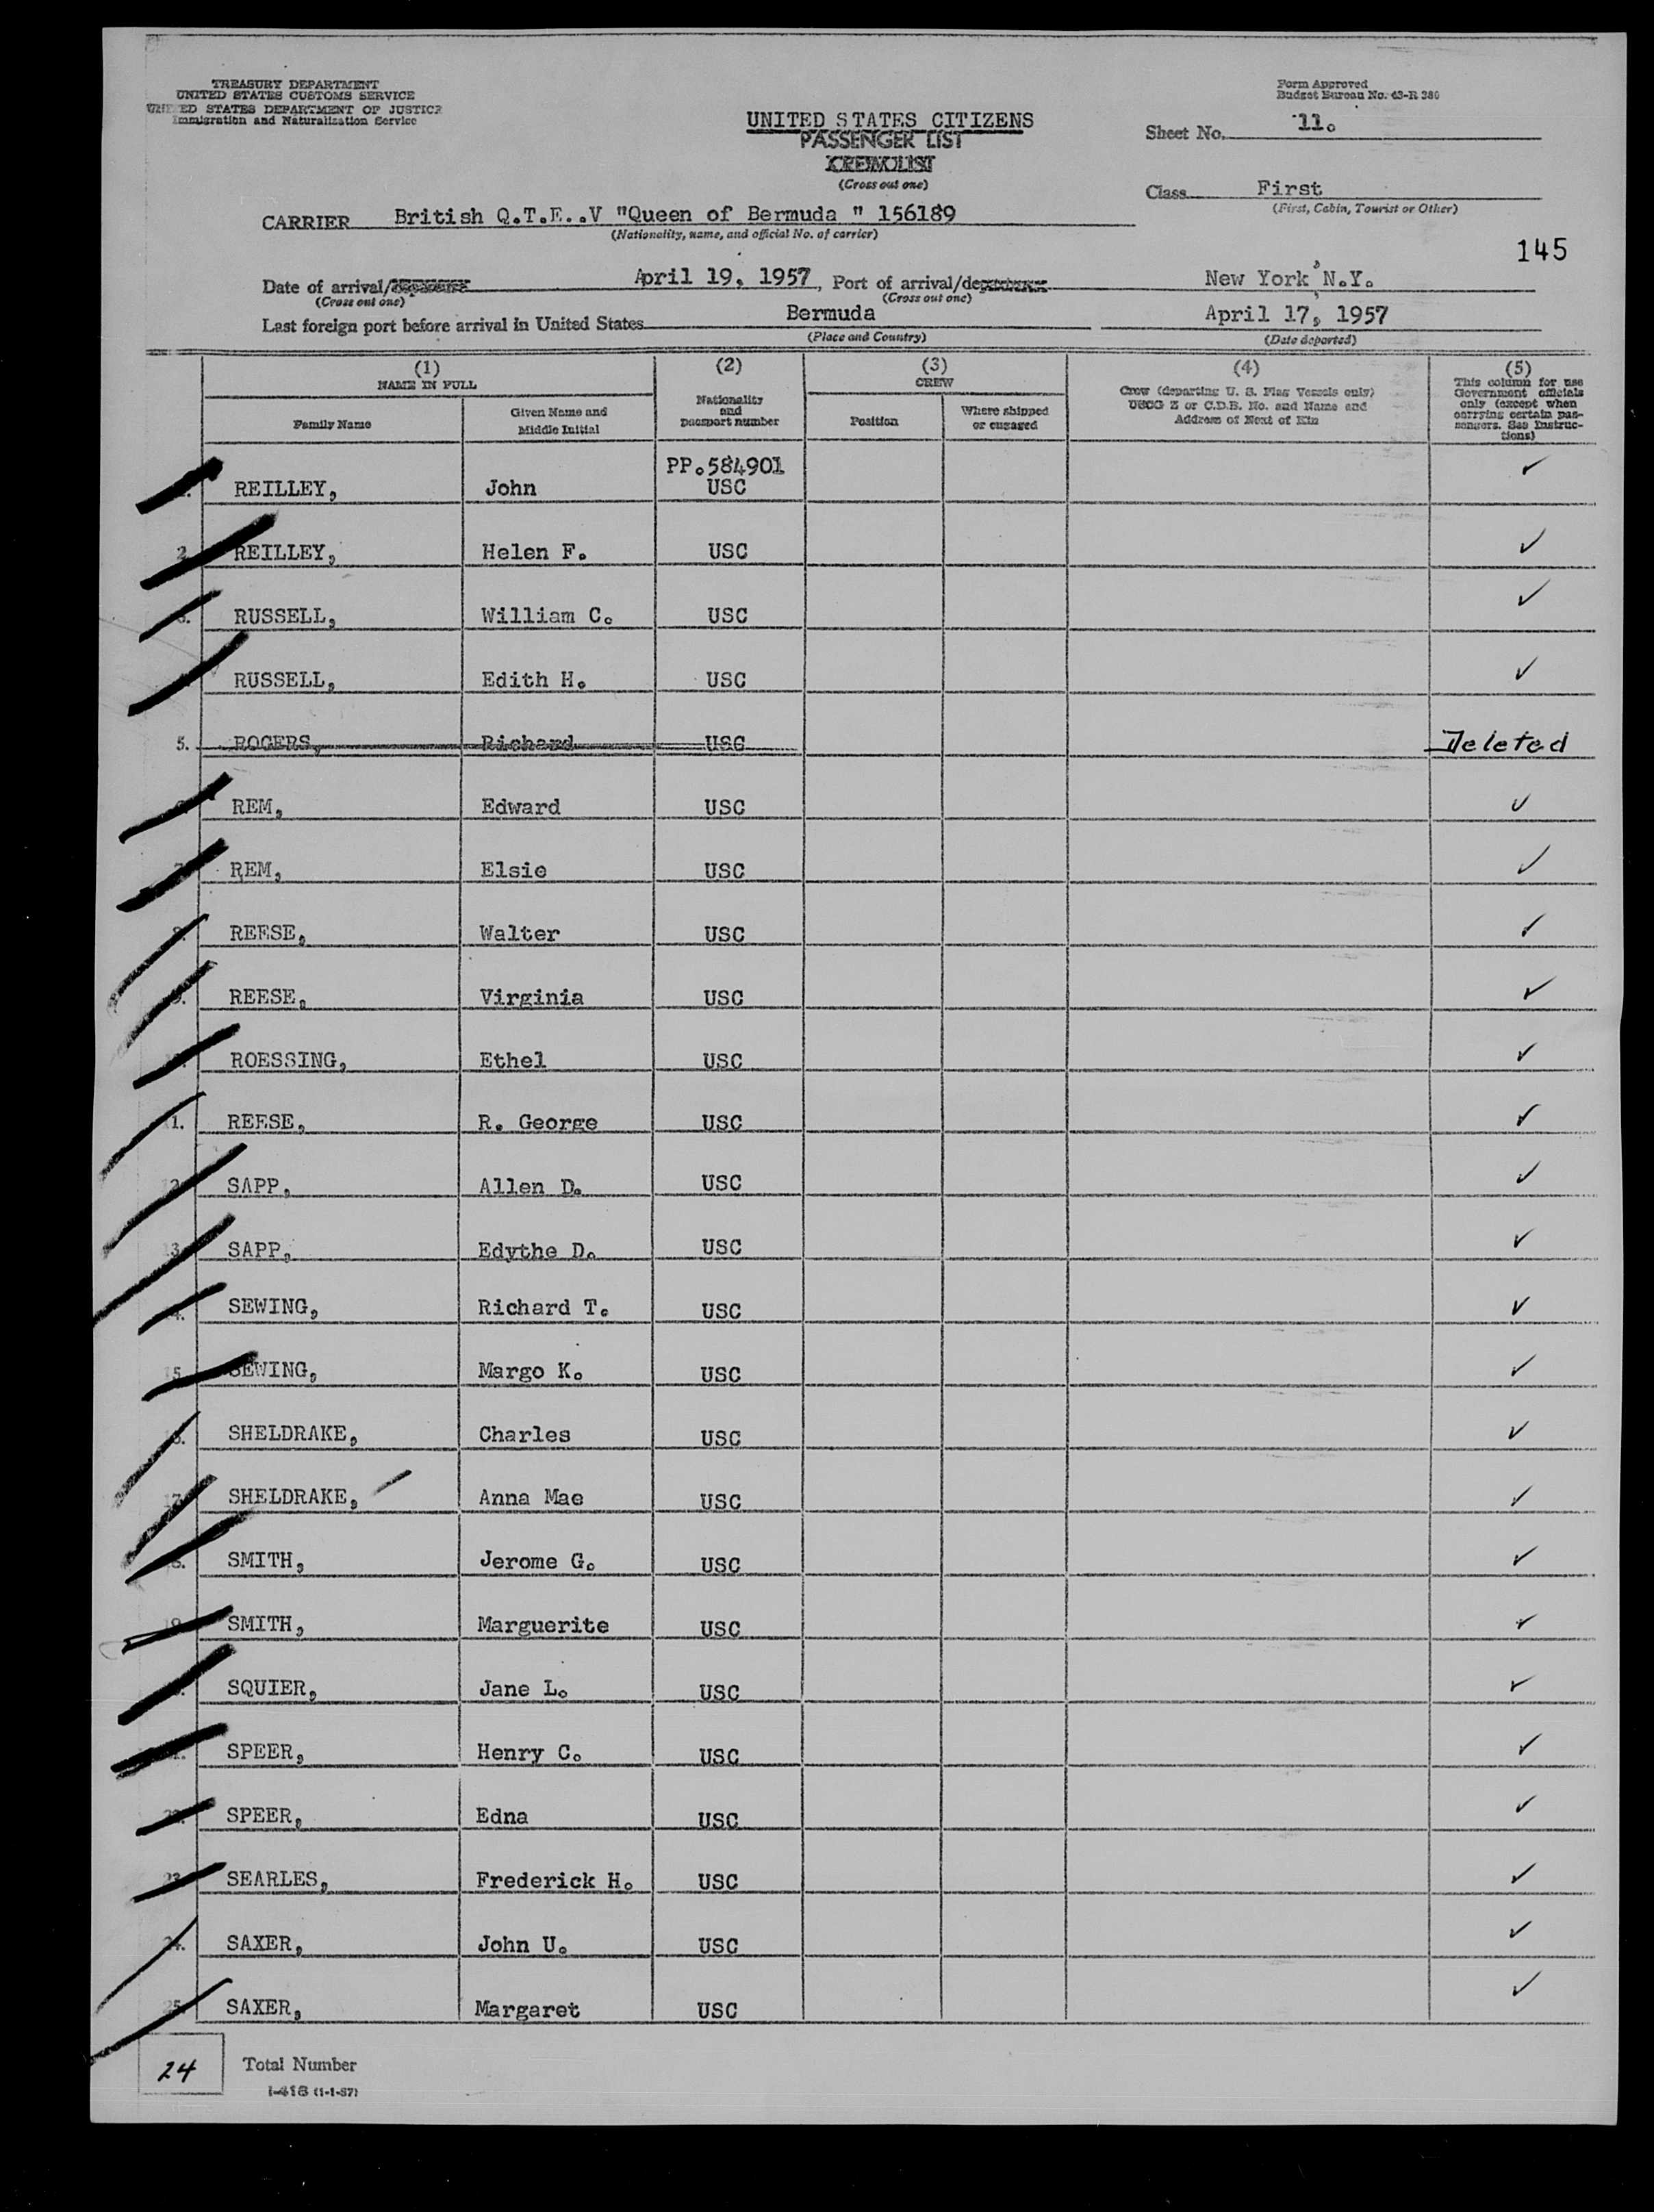 TREASURY DEPARTMENT
UNITED STATES CUSTOMS SERVICE
UNITED STATES DEPARTMENT OF JUSTICE
Immigration and Naturalization Service
Form Approved
Budget Bureau No. 43-R 380
UNITED STATES CITIZENS
PASSENGER LIST
CREW LIST
(Cross out one)
Sheet No. 11.
Class First
(First, Cabin, Tourist or Other)
CARRIER British Q.T.E..V "Queen of Bermuda " 156189
(Nationality, name, and official No. of carrier)
145
Date of arrival/departure April 19, 1957, Port of arrival/departure New York, N.Y.
(Cross out one) (Cross out one)
Last foreign port before arrival in United States Bermuda April 17, 1957
(Place and Country) (Date departed)
(1) (2) (3) (4) (5)
NAME IN FULL
Family Name
Given Name and Middle Initial
Nationality and passport number
CREW
Position
Where shipped or engaged
Crew (departing U. S. Flag Vessels only)
USCG Z or C.D.B. No. and Name and
Address of Next of Kin
This column for use
Government officials
only (except when
carrying certain pas-
sengers. See Instruc-
tions)
PP.584901
REILLEY, John USC ✓
2. REILLEY, Helen F. USC ✓
3. RUSSELL, William C. USC ✓
RUSSELL, Edith H. USC ✓
5. ROGERS, Richard USC Deleted
REM, Edward USC ✓
7. REM, Elsie USC ✓
8. REESE, Walter USC ✓
9. REESE, Virginia USC ✓
ROESSING, Ethel USC ✓
11. REESE, R. George USC ✓
12. SAPP, Allen D. USC ✓
13. SAPP, Edythe D. USC ✓
14. SEWING, Richard T. USC ✓
15. SEWING, Margo K. USC ✓
16. SHELDRAKE, Charles USC ✓
17. SHELDRAKE, Anna Mae USC ✓
18. SMITH, Jerome G. USC ✓
19. SMITH, Marguerite USC ✓
SQUIER, Jane L. USC ✓
21. SPEER, Henry C. USC ✓
22. SPEER, Edna USC ✓
23. SEARLES, Frederick H. USC ✓
24. SAXER, John U. USC ✓
25. SAXER, Margaret USC ✓
24 Total Number
I-418 (1-1-57)